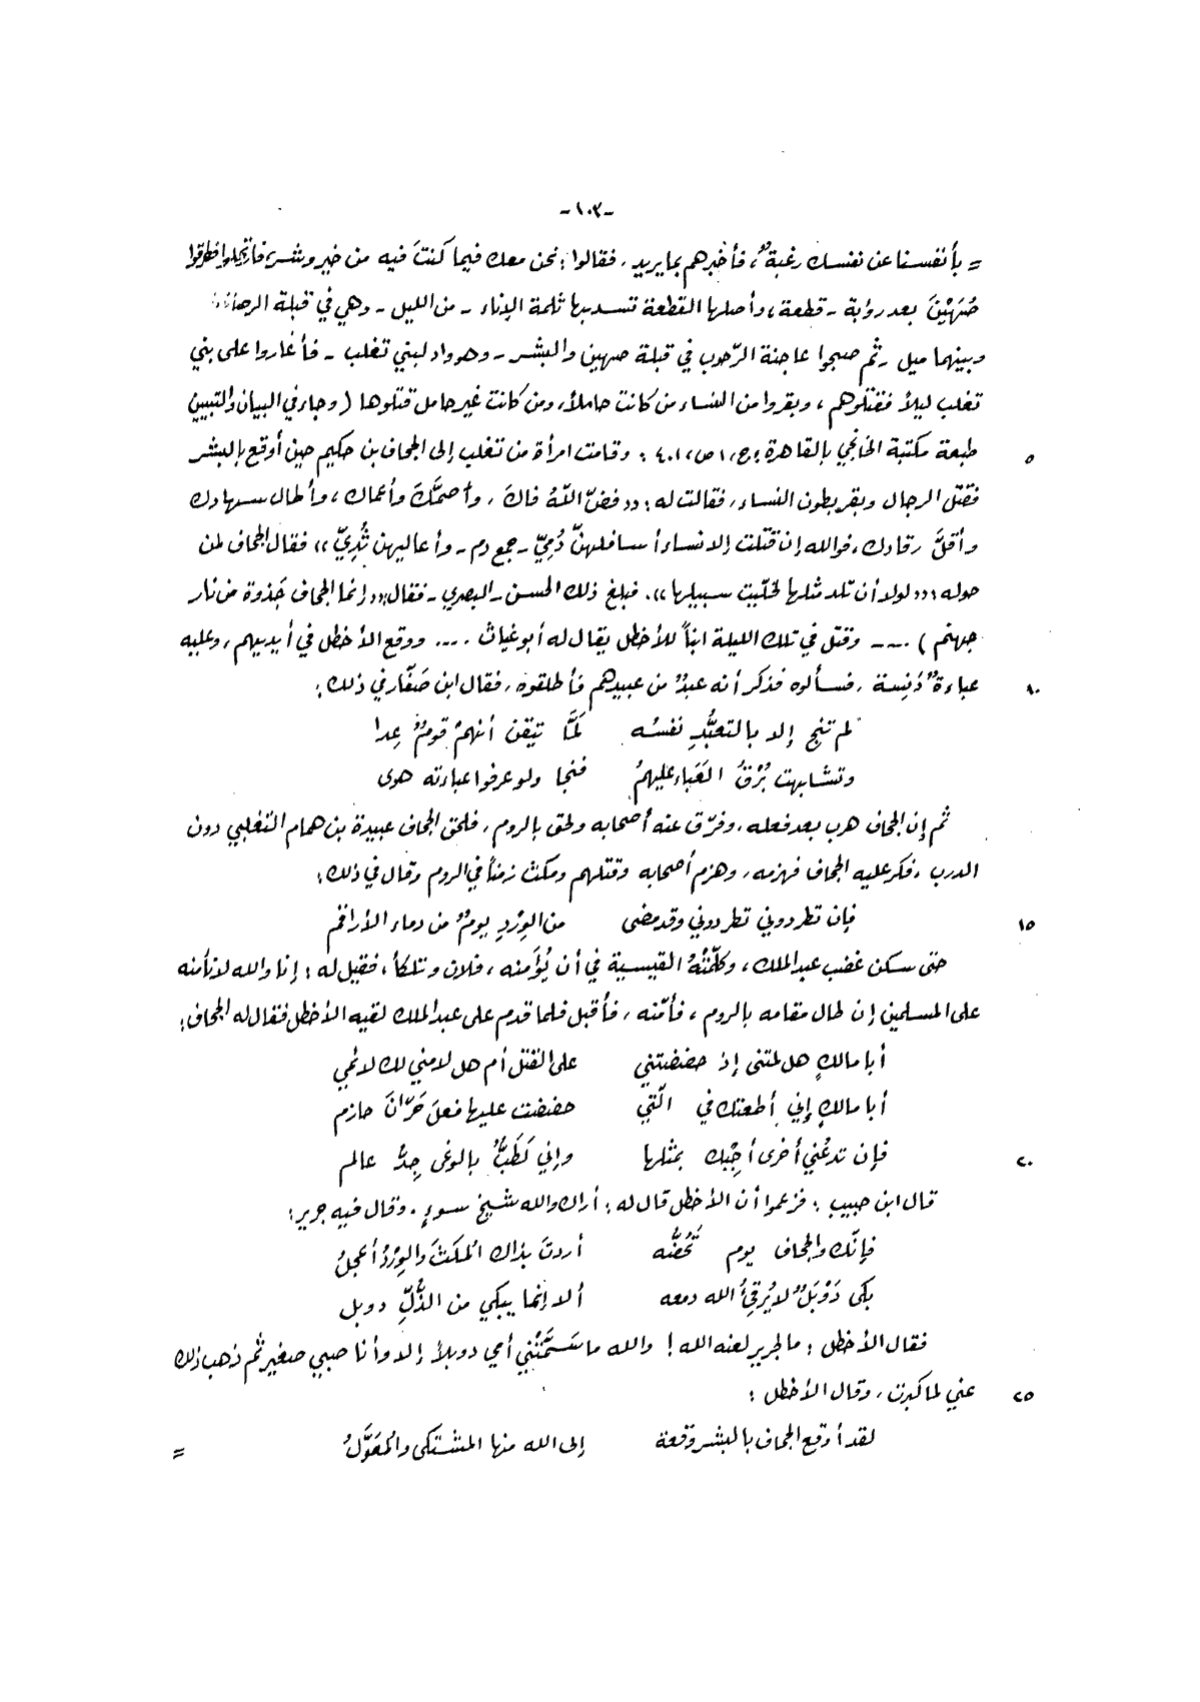 -١٠٢-
= بأنفسنا عن نفسك رغبةٌ، فأخبرهم بما يريد، فقالوا: نحن معك فيما كنتَ فيه من خير وشر، فارتحلوا فطرقوا
صُهَيْنَ بعد رؤبة - قطعة، وأصلها القطعة تسد بها ثلمة الإناء - من الليل - وهي في قبلة الرصافة
وبينهما ميل - ثم صبحوا عاجنة الرّحوب في قبلة صهين والبشر - وهو واد لبني تغلب - فأغاروا على بني
تغلب ليلاً فقتلوهم، وبقروا من النساء من كانت حاملاً، ومن كانت غير حامل قتلوها (وجاء في البيان والتبيين
٥ طبعة مكتبة الخانجي بالقاهرة: ج،١ ص، ٤٠١: وقامت امرأة من تغلب إلى الجحاف بن حكيم حين أوقع بالبشر
فقتل الرجال وبقر بطون النساء، فقالت له: «فضّ اللهُ فاكَ، وأصمَّكَ وأعماك، وأطال سهادك
وأقلَّ رقادك، فوالله إن قتلت إلا نساءً أسافلهنّ دُمِيّ - جمع دم - وأعاليهن ثُدِيّ» فقال الجحاف لمن
حوله: «لولا أن تلد مثلها لخلّيت سبيلها». فبلغ ذلك الحسن - البصري - فقال: «إنما الجحاف جَذوة من نار
جهنم) .... وقتل في تلك الليلة ابناً للأخطل يقال له أبو غياث .... ووقع الأخطل في أيديهم، وعليه
١٠ عباءةٌ دَنِسة، فسألوه فذكر أنه عبدٌ من عبيدهم فأطلقوه، فقال ابن صَفّار في ذلك:
لم تنج إلا بالتعبُّدِ نفسُه لَمَّا تيَقن أنهمْ قومٌ عِدا
وتشابهت بُرْقُ العَباء عليهمُ فنجا ولو عرفوا عباءته هوى
ثم إن الجحاف هرب بعد فعله، وفرّق عنه أصحابه ولحق بالروم، فلحق الجحاف عبيدة بن همام التغلبي دون
الدرب، فكر عليه الجحاف فهزمه، وهزم أصحابه وقتلهم ومكث زمناً في الروم وقال في ذلك:
١٥ فإن تطردوني تطردوني وقد مضى من الوِرْدِ يومٌ من دماء الأراقم
حتى سكن غضب عبد الملك، وكلّمَتْهُ القيسية في أن يُؤَمنه، فلان وتلكأ، فقيل له: إنا والله لا نأمنه
على المسلمين إن طال مقامه بالروم، فأمّنه، فأقبل فلما قدم على عبد الملك لقيه الأخطل فقال له الجحاف:
أبا مالكٍ هل لمتنى إذ حضضتني على القتل أم هل لامني لك لائمي
أبا مالكٍ إني أطعتك في الّتي حضضت عليها فعلَ حَرّانَ حازم
٢٠ فإن تدعُني أخرى أُجِبْك بمثلها وإني لَطَبٌّ بالوغى جِدُّ عالم
قال ابن حبيب: فزعموا أن الأخطل قال له: أراك والله شيخ سوءٍ. وقال فيه جرير:
فإنّك والجحاف يوم تَحُضُّه أردتَ بذاك المُكثَ والوِرْدُ أعجلُ
بكى دَوْبَلٌ لا يُرقِئُ الله دمعه ألا إنما يبكي من الذُّلِّ دوبل
فقال الأخطل: ما لجرير لعنه الله! والله ما سَمَّتْني أمي دوبلاً إلا وأنا صبي صغير ثم ذهب ذلك
٢٥ عني لما كبرت، وقال الأخطل:
لقد أوقع الجحاف بالبشر وقعة إلى الله منها المشتكى والمُعَوَّلُ =